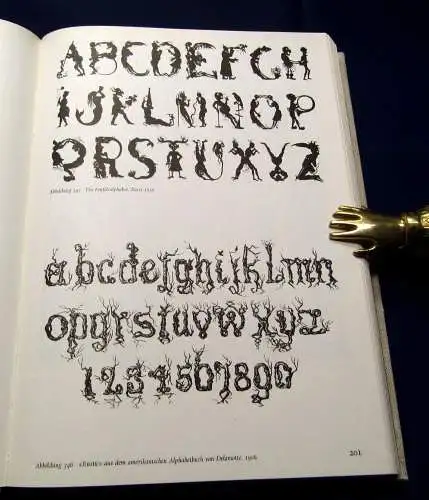 ABCDEFGH
IJKLMNOP
QRSTUXYZ
Abbildung Paris
abcdefghijklmn
opqrstuvwxyz
1234567890
Abbildung 346 «Rustic» aus dem amerikanischen Alphabetbuch von Delamotte, 1906
201